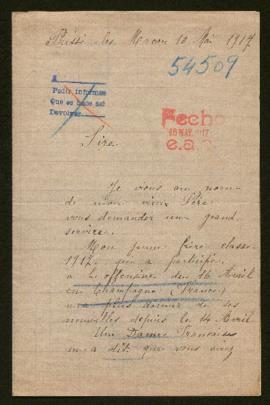 Prissé les Macon 10 Mai 1917
54509
A
Pedir informes
Que se hace set
Devolver
Fecho
16 MAY. 1917
e.a.
Sire
Je viens au nom
de mon vieux Père
vous demander un grand
service.
Mon jeune frère classe
1917, qui a participé
à l'offensive du 16 Avril
en Champagne (France)
n'a plus donné de ses
nouvelles depuis le 14 Avril
Une Dame Française
m'a dit que vous aviez